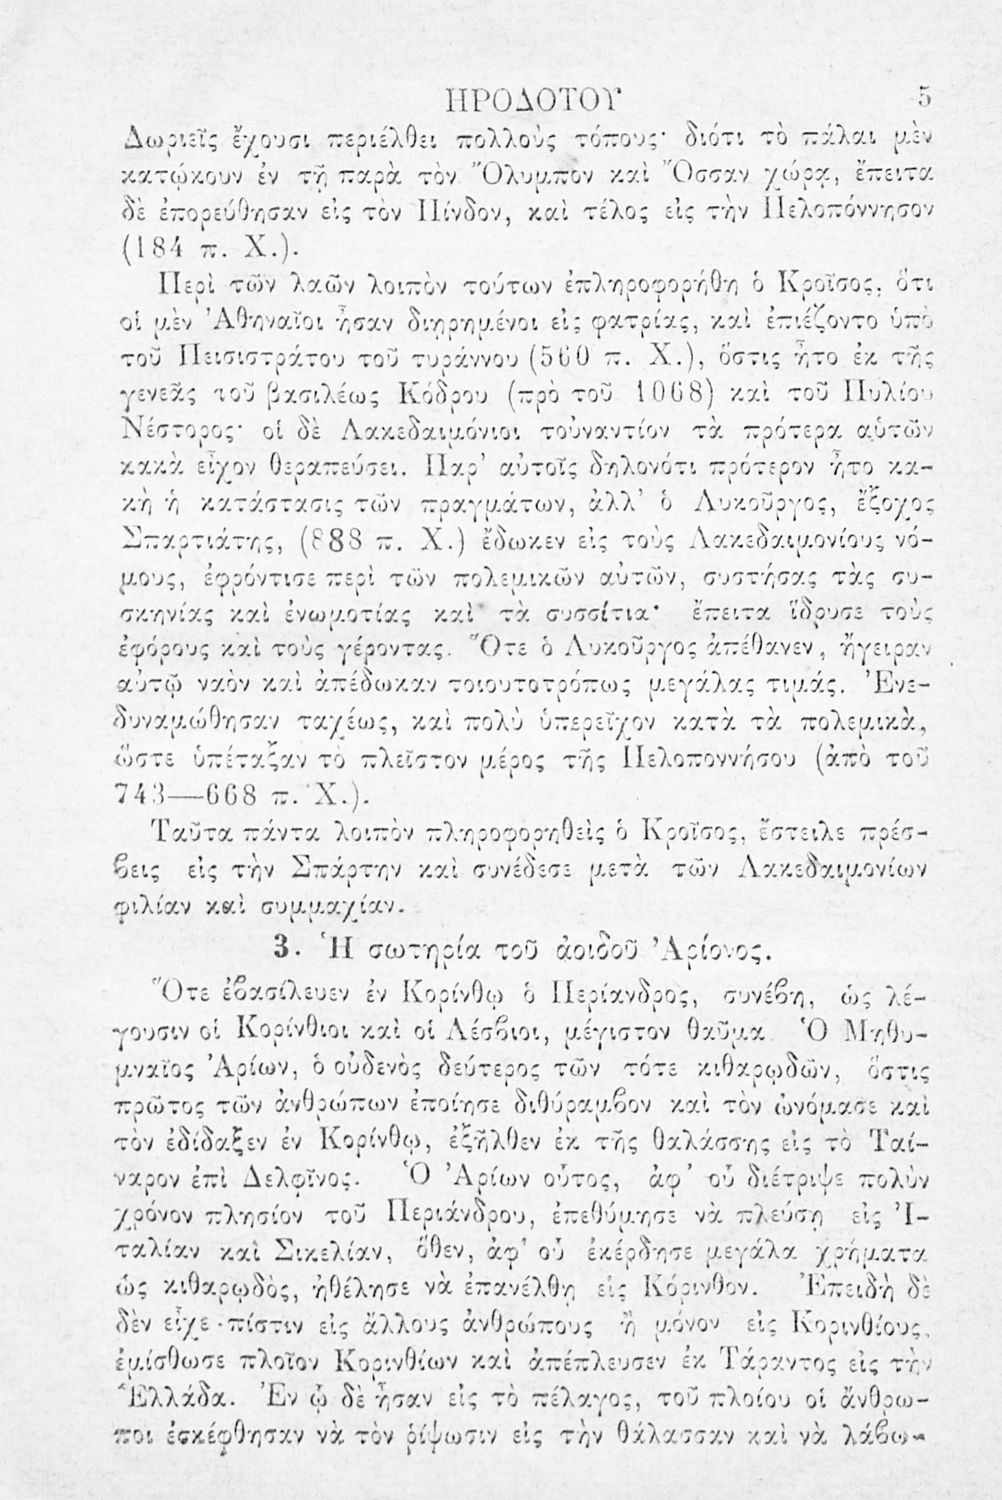 ΗΡΟΔΟΤΟΥ 5
Δωριεῖς ἔχουσι περιέλθει πολλοὺς τόπους· διότι τὸ πάλαι μὲν
κατῴκουν ἐν τῇ παρὰ τὸν Ὄλυμπον καὶ Ὄσσαν χώρᾳ, ἔπειτα
δὲ ἐπορεύθησαν εἰς τὸν Πίνδον, καὶ τέλος εἰς τὴν Πελοπόννησον
(184 π. Χ.).
Περὶ τῶν λαῶν λοιπὸν τούτων ἐπληροφορήθη ὁ Κροῖσος, ὅτι
οἱ μὲν Ἀθηναῖοι ἦσαν διῃρημένοι εἰς φατρίας, καὶ ἐπιέζοντο ὑπὸ
τοῦ Πεισιστράτου τοῦ τυράννου (560 π. Χ.), ὅστις ἦτο ἐκ τῆς
γενεᾶς τοῦ βασιλέως Κόδρου (πρὸ τοῦ 1068) καὶ τοῦ Πυλίου
Νέστορος· οἱ δὲ Λακεδαιμόνιοι τοὐναντίον τὰ πρότερα αὑτῶν
κακὰ εἶχον θεραπεύσει. Παρ' αὐτοῖς δηλονότι πρότερον ἦτο κα-
κὴ ἡ κατάστασις τῶν πραγμάτων, ἀλλ' ὁ Λυκοῦργος, ἔξοχος
Σπαρτιάτης, (888 π. Χ.) ἔδωκεν εἰς τοὺς Λακεδαιμονίους νό-
μους, ἐφρόντισε περὶ τῶν πολεμικῶν αὐτῶν, συστήσας τὰς συ-
σκηνίας καὶ ἐνωμοτίας καὶ τὰ συσσίτια· ἔπειτα ἵδρυσε τοὺς
ἐφόρους καὶ τοὺς γέροντας. Ὅτε ὁ Λυκοῦργος ἀπέθανεν, ἤγειραν
αὐτῷ ναὸν καὶ ἀπέδωκαν τοιουτοτρόπως μεγάλας τιμάς. Ἐνε-
δυναμώθησαν ταχέως, καὶ πολὺ ὑπερεῖχον κατὰ τὰ πολεμικὰ,
ὥστε ὑπέταξαν τὸ πλεῖστον μέρος τῆς Πελοποννήσου (ἀπὸ τοῦ
743—668 π. Χ.).
Ταῦτα πάντα λοιπὸν πληροφορηθεὶς ὁ Κροῖσος, ἔστειλε πρέσ-
βεις εἰς τὴν Σπάρτην καὶ συνέδεσε μετὰ τῶν Λακεδαιμονίων
φιλίαν καὶ συμμαχίαν.
3. Ἡ σωτηρία τοῦ ἀοιδοῦ Ἀρίονος.
Ὅτε ἐβασίλευεν ἐν Κορίνθῳ ὁ Περίανδρος, συνέβη, ὡς λέ-
γουσιν οἱ Κορίνθιοι καὶ οἱ Λέσβιοι, μέγιστον θαῦμα. Ὁ Μηθυ-
μναῖος Ἀρίων, ὁ οὐδενὸς δεύτερος τῶν τότε κιθαρῳδῶν, ὅστις
πρῶτος τῶν ἀνθρώπων ἐποίησε διθύραμβον καὶ τὸν ὠνόμασε καὶ
τὸν ἐδίδαξεν ἐν Κορίνθῳ, ἐξῆλθεν ἐκ τῆς θαλάσσης εἰς τὸ Ταί-
ναρον ἐπὶ Δελφῖνος. Ὁ Ἀρίων οὗτος, ἀφ' οὗ διέτριψε πολὺν
χρόνον πλησίον τοῦ Περιάνδρου, ἐπεθύμησε νὰ πλεύσῃ εἰς Ἰ-
ταλίαν καὶ Σικελίαν, ὅθεν, ἀφ' οὗ ἐκέρδησε μεγάλα χρήματα
ὡς κιθαρῳδὸς, ἠθέλησε νὰ ἐπανέλθῃ εἰς Κόρινθον. Ἐπειδὴ δὲ
δὲν εἶχε πίστιν εἰς ἄλλους ἀνθρώπους ἢ μόνον εἰς Κορινθίους,
ἐμίσθωσε πλοῖον Κορινθίων καὶ ἀπέπλευσεν ἐκ Τάραντος εἰς τὴν
Ἑλλάδα. Ἐν ᾧ δὲ ἦσαν εἰς τὸ πέλαγος, τοῦ πλοίου οἱ ἄνθρω-
ποι ἐσκέφθησαν νὰ τὸν ῥίψωσιν εἰς τὴν θάλασσαν καὶ νὰ λάβω-